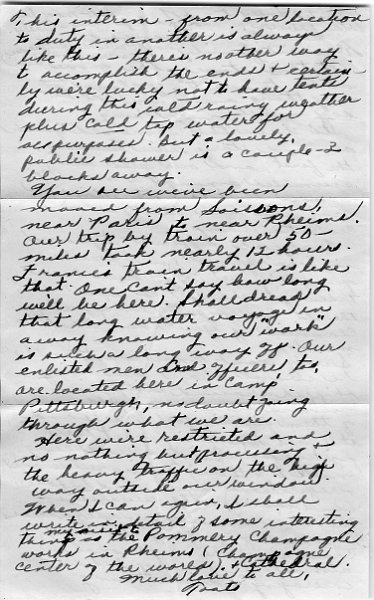 This interim - from one location
to duty in another is always
like this - there's no other way
to accomplish the ends & certain
ly we're lucky not to have tents
during this cold rainy weather
plus cold tap water for
all purposes. But a lovely,
public shower is a couple - 2
blocks away.
You see we've been
moved from Soissons,
near Paris to near Rheims.
Our trip by train over 50 -
miles took nearly 12 hours.
Frances train travel is like
that. One can't say how long
we'll be here. I shall dread
that long water voyage in
a way knowing our "work"
is such a long way off. Our
enlisted men and officers, to,
are located here in Camp
Pittsburgh, no doubt going
through what we are.
Here we're restricted and
no nothing but processing &
the heavy traffic on the high
way outside our windows.
When I can again, I shall
write in detail of some interesting
things as the Pommery Champagne
works in Rheims (Champagne
center of the world). & Cathedral.
Much love to all,